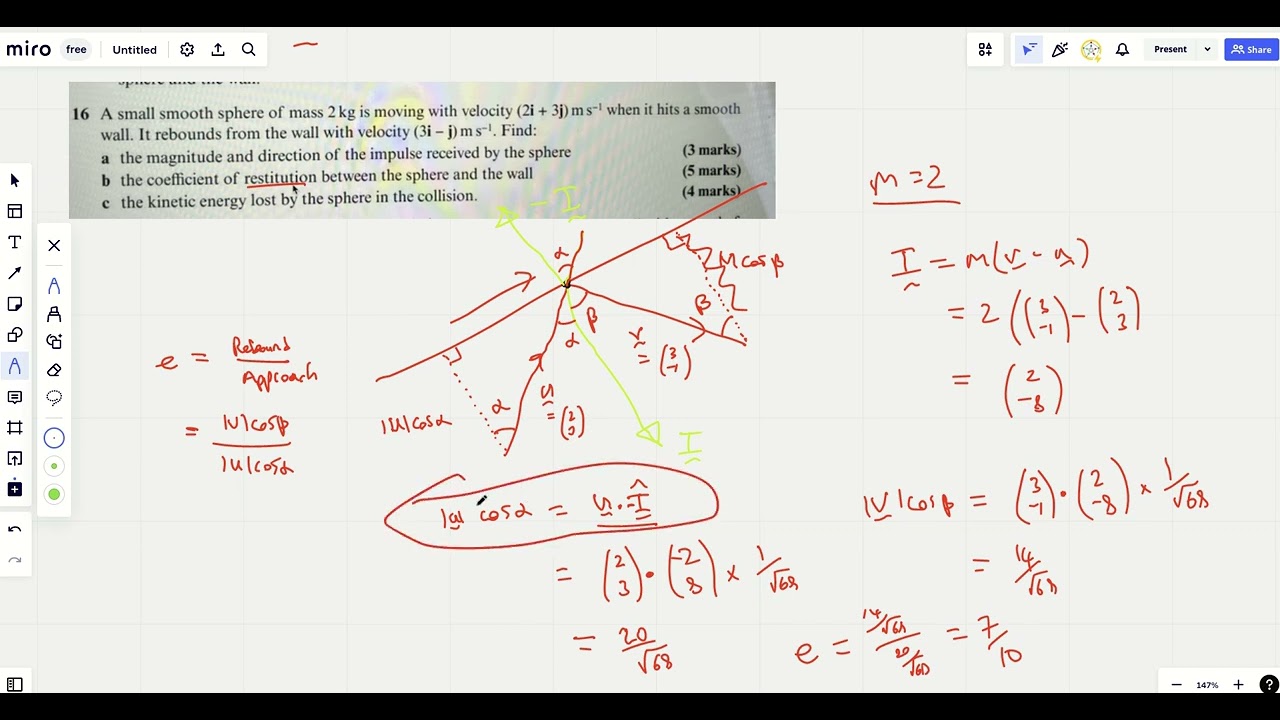 miro free Untitled
Present Share
sphere and the wall.
16 A small smooth sphere of mass 2 kg is moving with velocity (2i + 3j) m s⁻¹ when it hits a smooth
wall. It rebounds from the wall with velocity (3i − j) m s⁻¹. Find:
a the magnitude and direction of the impulse received by the sphere (3 marks)
b the coefficient of restitution between the sphere and the wall (5 marks)
c the kinetic energy lost by the sphere in the collision. (4 marks)
m = 2
-I
α
|v|cosβ
β
β
α
α
v = (3 -1)
u = (2 3)
|u|cosα
I
I = m(v - u)
= 2((3 -1) - (2 3))
= (2 -8)
e = Rebound / Approach
= |v|cosβ / |u|cosα
|u| cosα = u . -Î
= (2 3) . (-2 8) × 1/√68
= 20/√68
|v|cosβ = (3 -1) . (2 -8) × 1/√68
= 14/√68
e = 14/√68 / 20/√68 = 7/10
147%